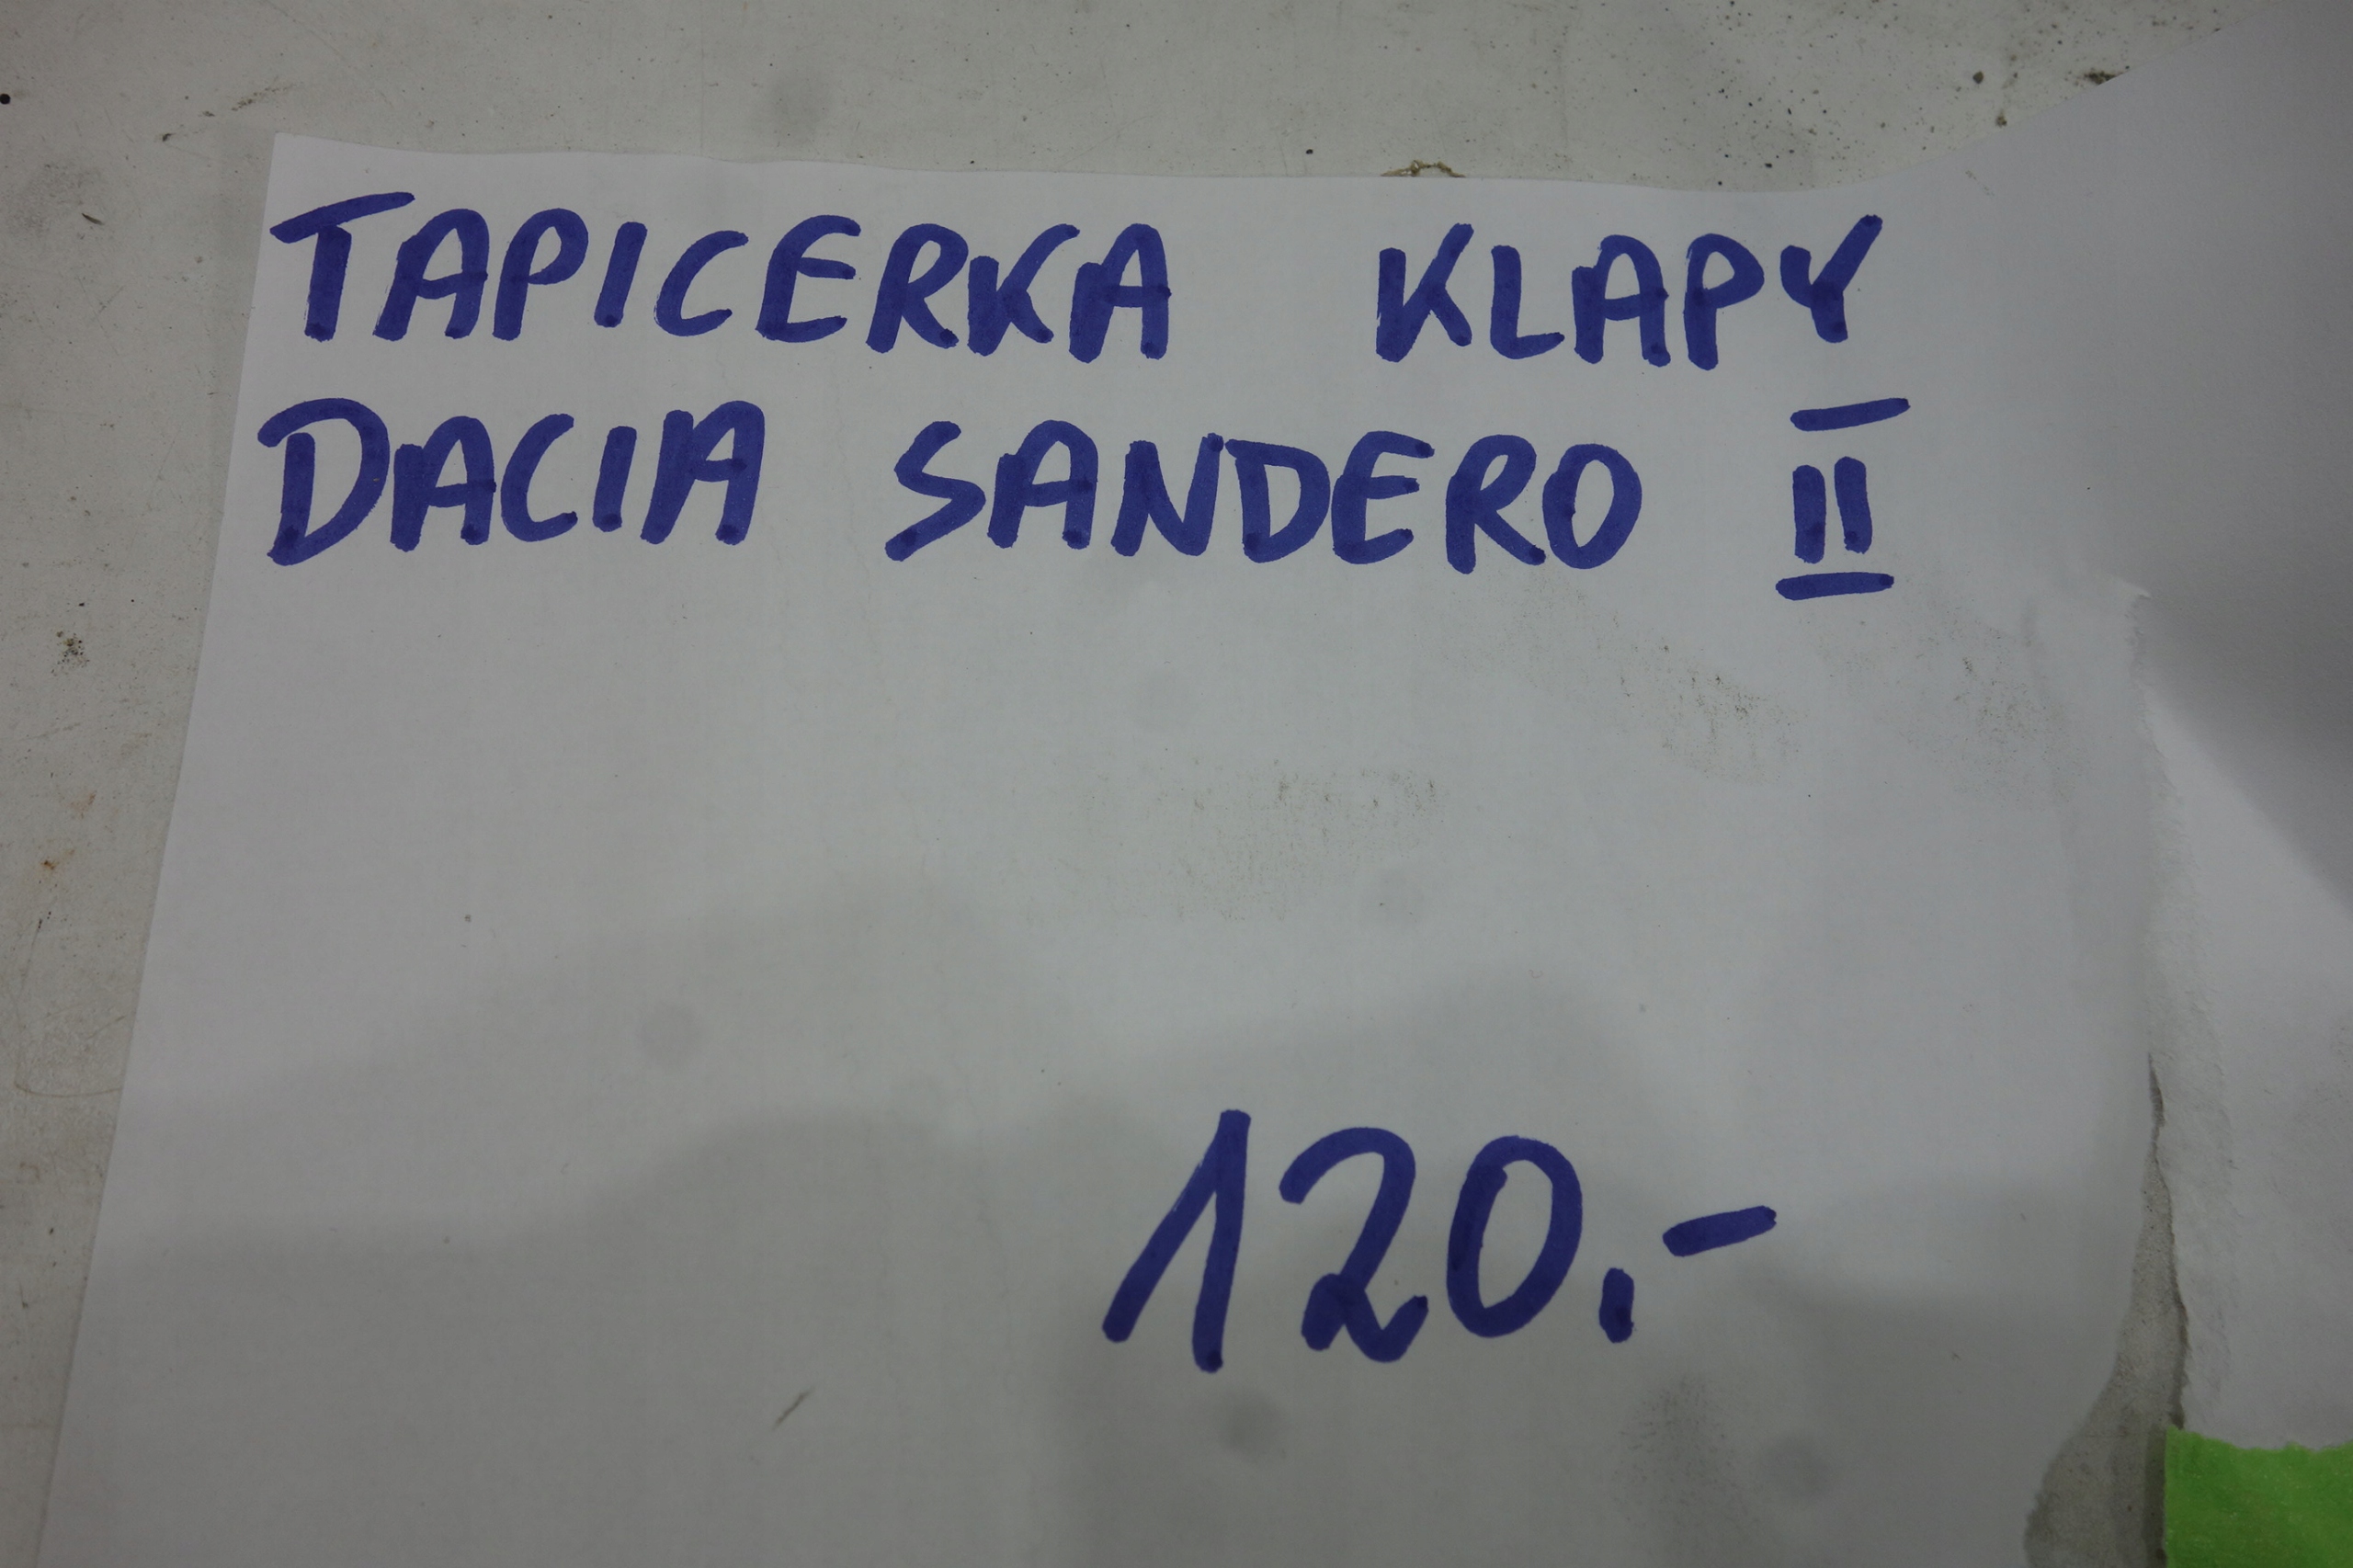 TAPICERKA KLAPY
DACIA SANDERO II
120.-